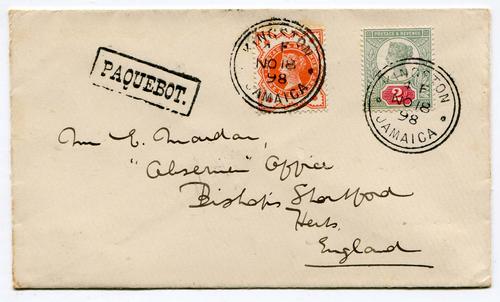 PAQUEBOT.
KINGSTON
A F
NO 18
98
JAMAICA
POSTAGE & REVENUE
2
KINGSTON
A F
NO 18
98
JAMAICA
Mr E. Mardon,
"Observer" Office
Bishop's Stortford
Herts.
England